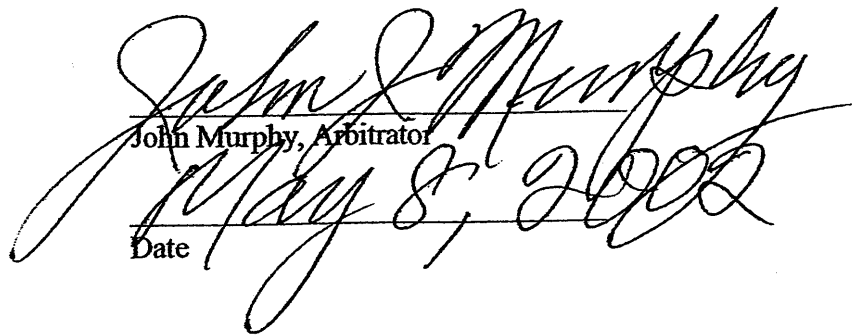 John J Murphy
John Murphy, Arbitrator
May 8, 2002
Date